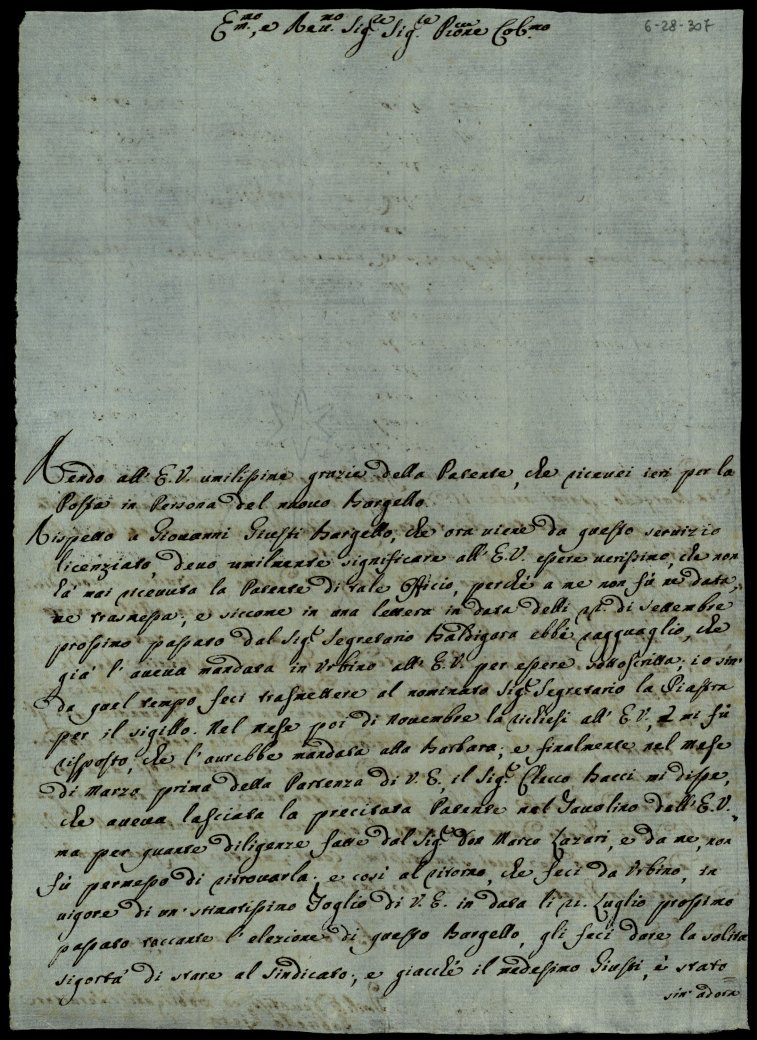 E.mo, e Reu.mo Sig.re Sig.re P̃rone Col.mo
6-28-307
Rendo all' E.V. umilissime grazie della Patente, che riceuei ieri per la
Posta in Persona del nuouo Bargello.
Rispetto a Giouanni Giusti Bargello, che ora uiene da questo seruizio
licenziato, deuo umilmente significare all' E.V. essere uerissimo, che non
hà mai riceuuta la Patente di tale Officio, perché a me non fù ne data,
ne trasmessa; e siccome in una lettera in data delli di Settembre
prossimo passato dal Sig.r Segretario Baldigara ebbi ragguaglio, che
gia' l' aueua mandata in Urbino all' E.V. per essere sottoscritta; io sin'
da quel tempo feci trasmettere al nominato Sig.r Segretario la Piastra
per il sigillo. Nel mese poi di Nouembre la richiesi all' E.V., e mi fù
risposto, che l' aurebbe mandata alla Barbara; e finalmente nel mese
di Marzo prima della Partenza di V.E., il Sig.r Checco Bacci mi disse,
che aueua lasciata la precitata Patente nel Tauolino dell' E.V.
ma per quante diligenze fatte dal Sig.r Don Marco Lazari, e da me, non
fù permesso di ritrouarla; e cosi al ritorno, che feci da Urbino, in
uigore di un' stimatissimo Foglio di V.E. in data li 21. Luglio prossimo
passato toccante l' elezione di questo Bargello, gli feci dare la solita
sigortà di stare al Sindicato; e giacché il medesimo Giusti, è stato
sin' adora